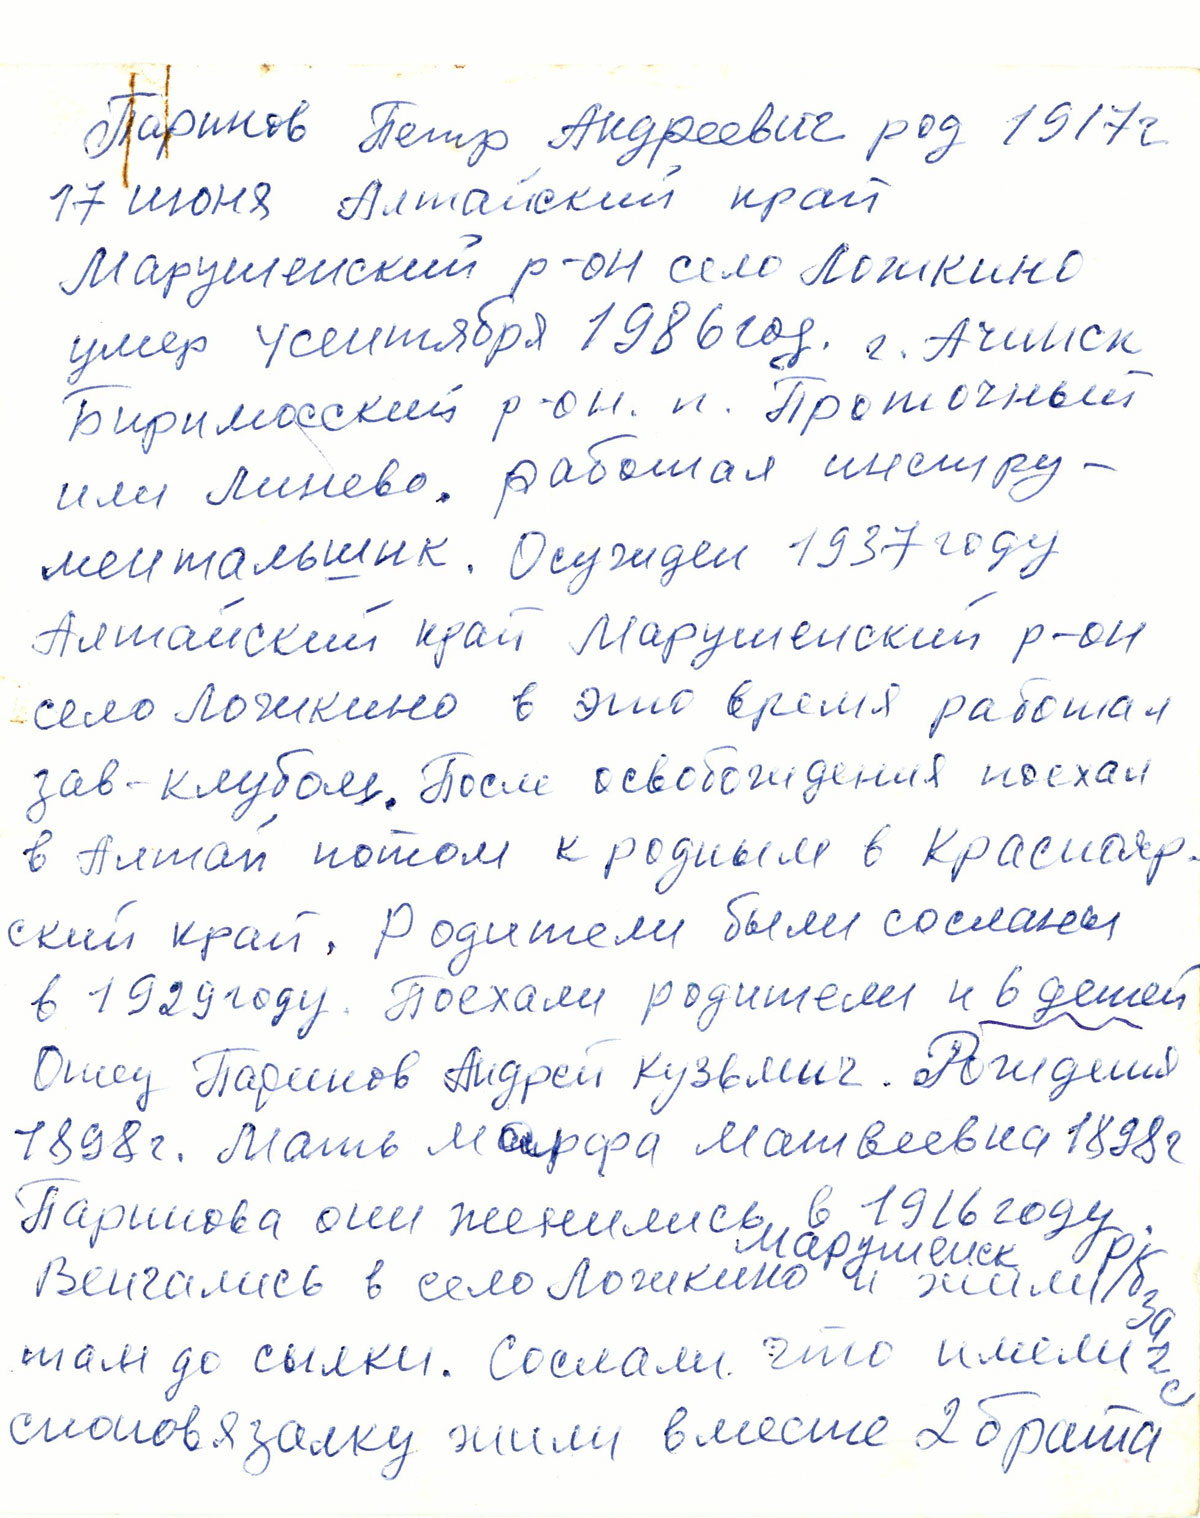 Паринов Петр Андреевич род 1917г
17 июня Алтайский край
Марушенский р-он село Ложкино
умер 4 сентября 1986 год. г. Ачинск
Биримосский р-он. п. Проточный
или Линево. работал инстру-
ментальшик. Осужден 1937 году
Алтайский край Марушенский р-он
село Ложкино в это время работал
зав-клубом. После освобождения поехал
в Алтай потом к родным в Краснояр-
ский край. Родители были сосланы
в 1929 году. Поехали родители и 6 детей
Отец Паринов Андрей Кузьмич. Рождения
1898г. Мать Марфа Матвеевна 1898г
Паринова они женились в 1916 году.
Марушенск р/к
Венчались в село Ложкино и жили
загс
там до сылки. Сослали что имели
сноповязалку жили вместе 2 брата